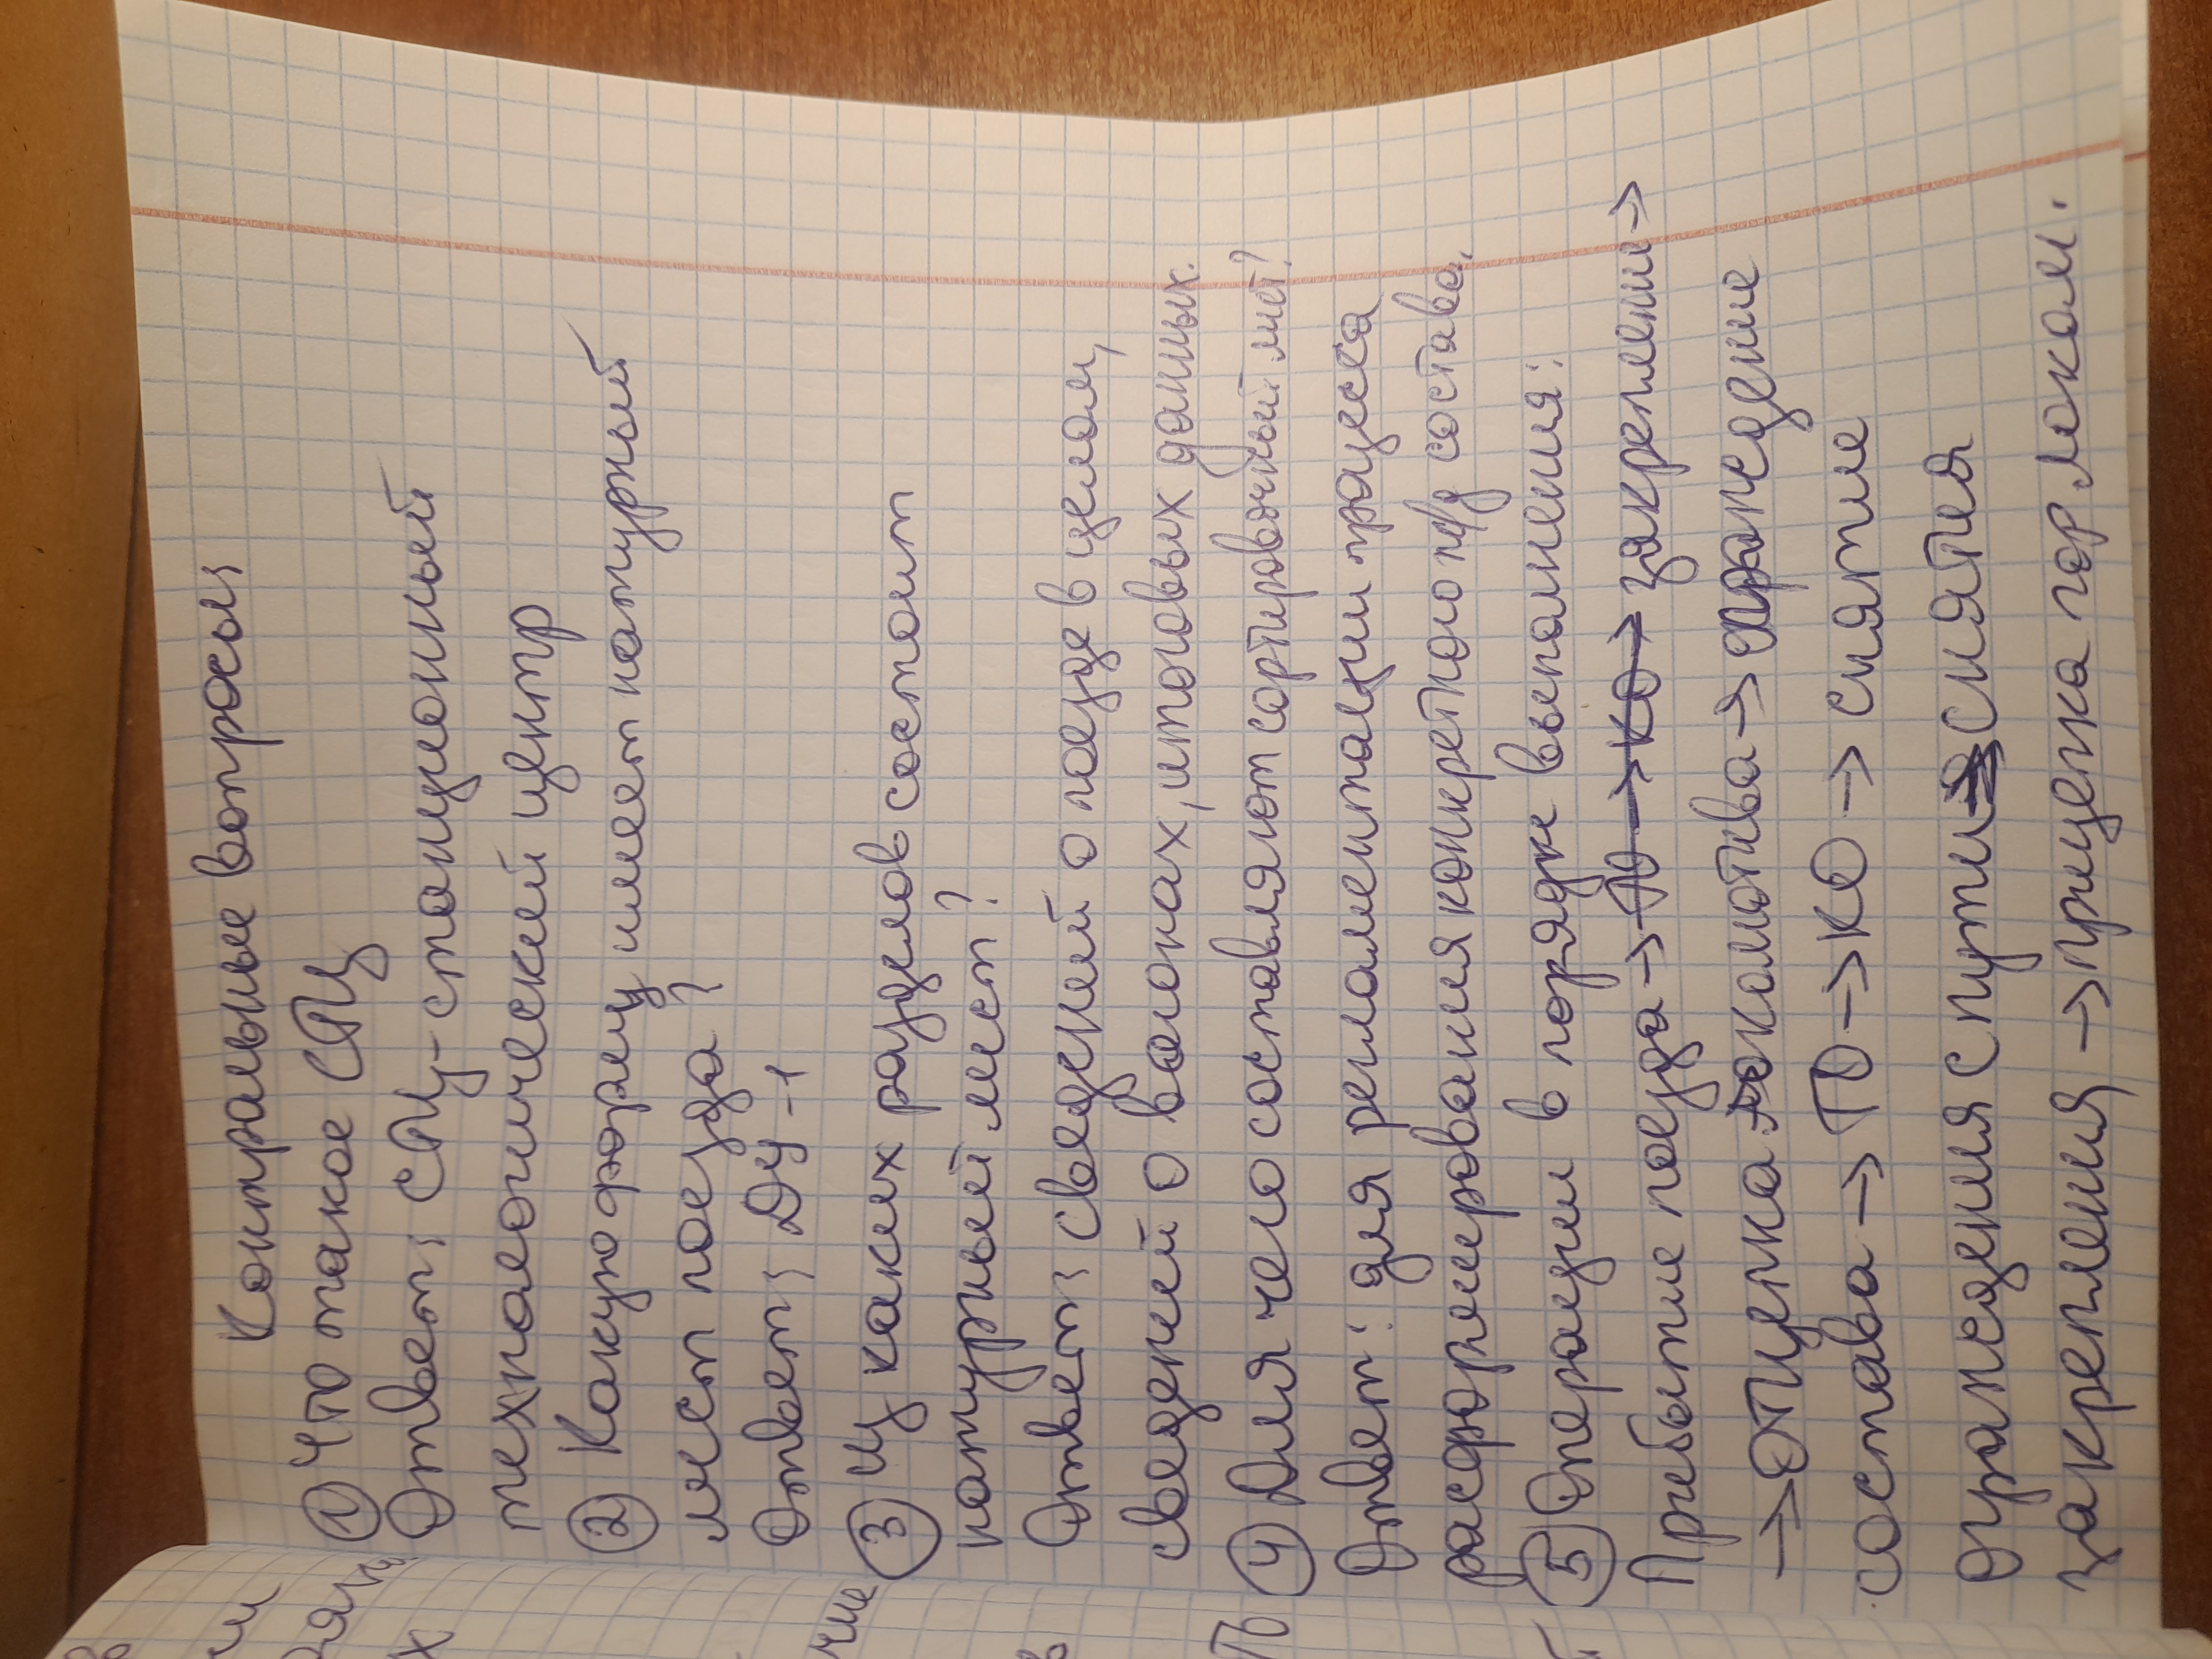 Контральные вопросы:
① Что такое СТЦ
Ответ: СТЦ - станционный
технологический центр
② Какую форму имеет натурный
лист поезда?
Ответ: ДУ-1
③ Из каких разделов состоит
натурный лист?
Ответ: сведений о поезде в целом,
сведений о вагонах, итоговых даных.
④ Для чего составляют сортировочный лист?
Ответ: для регламентации процесса
расформирования конкретного п/д состава.
⑤ Операции в порядке выполнения:
Прибытие поезда → ТО → КО → закрепении →
→ Отцепка локомотива → ограждение
состава → ТО → КО → снятие
ограждения с пути снятия
закрепления → прицепка гор локом.
чие